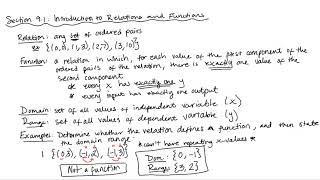 Section 9.1: Introduction to Relations and Functions
Relation: any set of ordered pairs
** {(0,2), (1,3), (2,7), (3,10)}
Function: a relation in which, for each value of the first component of the
ordered pairs of the relation, there is exactly one value of the
second component
* each x has exactly one y
* every input has exactly one output
Domain: set of all values of independent variable (x)
Range: set of all values of dependent variable (y)
Example: Determine whether the relation defines a function, and then state
the domain range. * can't have repeating x-values *
1. {(0,3), (-1,2), (-1,3)}
Not a function
Dom: {0, -1}
Range: {3, 2}